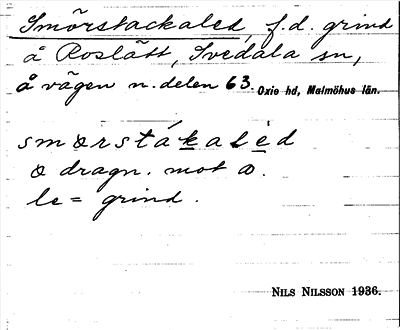 Smörstackaled, f.d. grind
å Roslätt, Svedala sn,
å vägen n. delen 63. Oxie hd, Malmöhus län.
smɵrstákalèd
ɵ dragn. mot ɷ.
le = grind.
NILS NILSSON 1936.